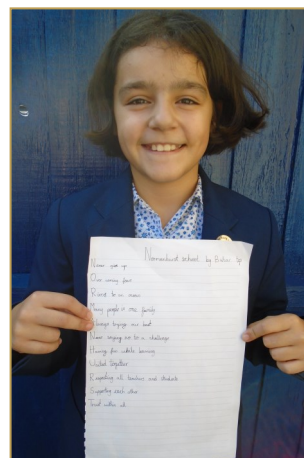 Normanhurst school by
Never give up
One caring
Rivers to
Many people in one family
Always trying our best
Never saying no to a challenge
Having fun while learning
United together
Respecting all teachers and students
Supporting each other
Trust within us